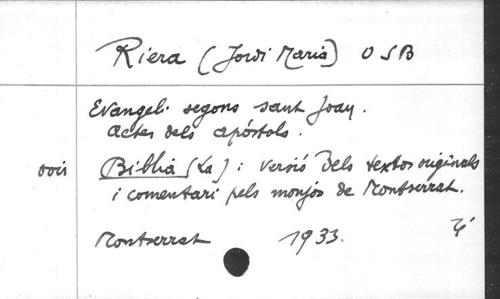 Riera (Jordi Maria) O S B
Evangeli segons sant Joan.
Actes dels apóstols.
voir Biblia (La) : versió dels textos originals
i comentari pels monjos de Montserrat.
Montserrat 1933.